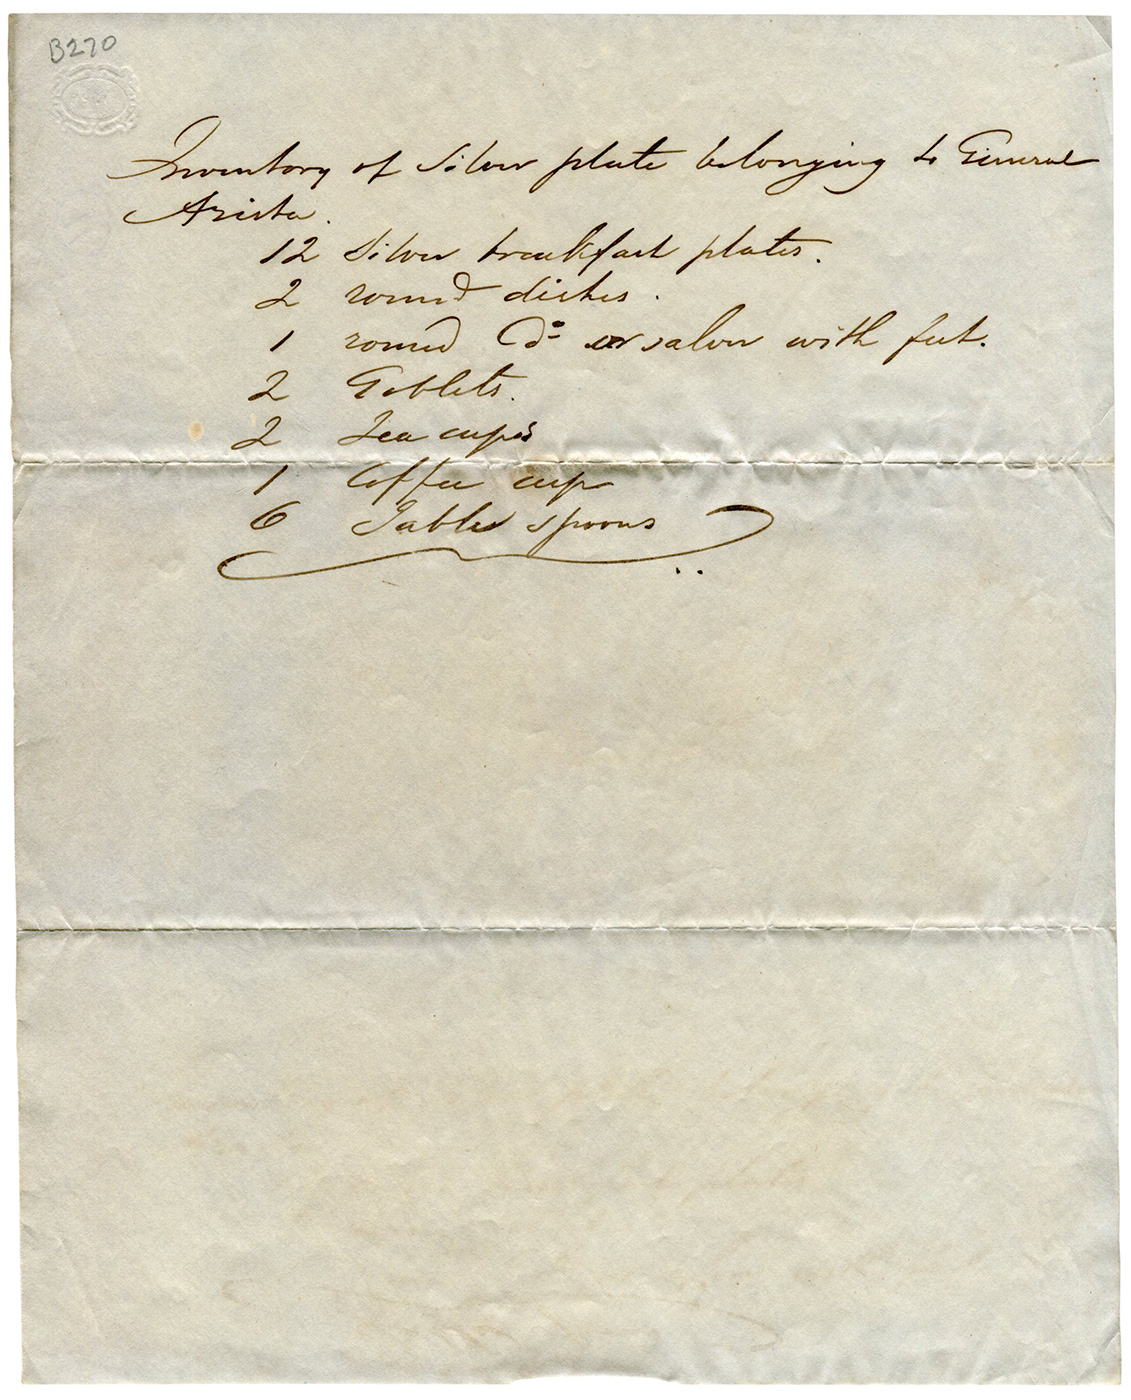 B270
Inventory of Silver plate belonging to General
Arista.
12 Silver breakfast plates.
2 round dishes.
1 round Do or salver with feet.
2 Goblets.
2 Tea cups
1 Coffee cup
6 Table spoons